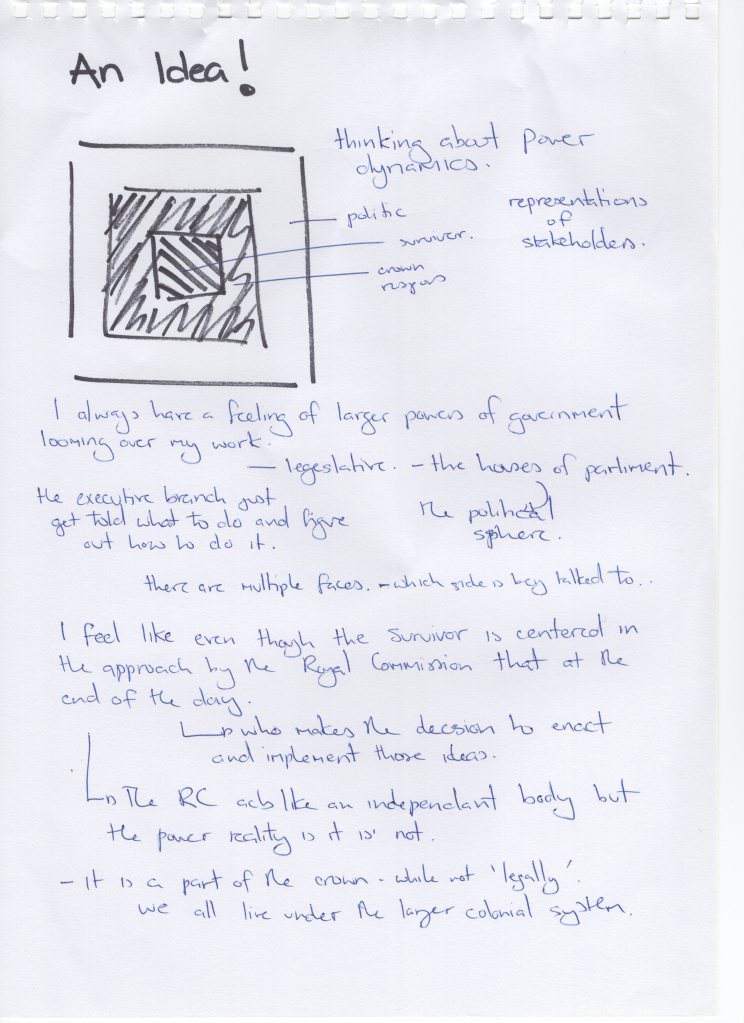 An Idea!
thinking about power
dynamics.
politic
representations
of
stakeholders.
survivor.
crown
respons
I always have a feeling of larger powers of government
looming over my work.
— legeslative. - the houses of parliment.
the executive branch just
get told what to do and figure
out how to do it.
the political
sphere.
there are multiple faces. - which side is beg talked to..
I feel like even though the survivor is centered in
the approach by the Royal Commission that at the
end of the day.
who makes the decsion to enact
and implement those ideas.
The RC acts like an independant body but
the power reality is it is not.
- it is a part of the crown - while not 'legally'.
we all live under the larger colonial system.